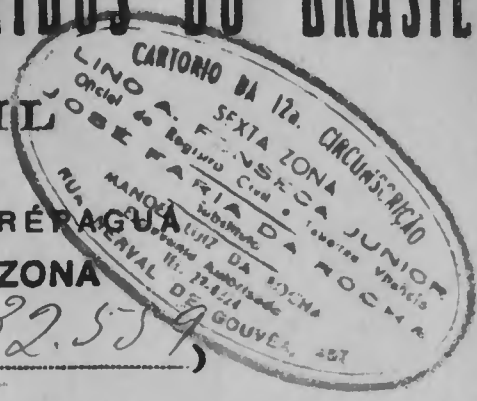 IDOS DO BRASIL
IL
RÉPAGUÁ
ZONA
32.559)
CARTORIO DA 12a. CIRCUNSCRIÇÃO
SEXTA ZONA
LINO A. FONSECA JUNIOR
Oficial do Registro Civil e Vitalício
JOSÉ FARIA DA ROCHA
Substituto
MANOEL LUIZ DA
Autorizado
RUA ERVAL DE GOUVÊA, 457